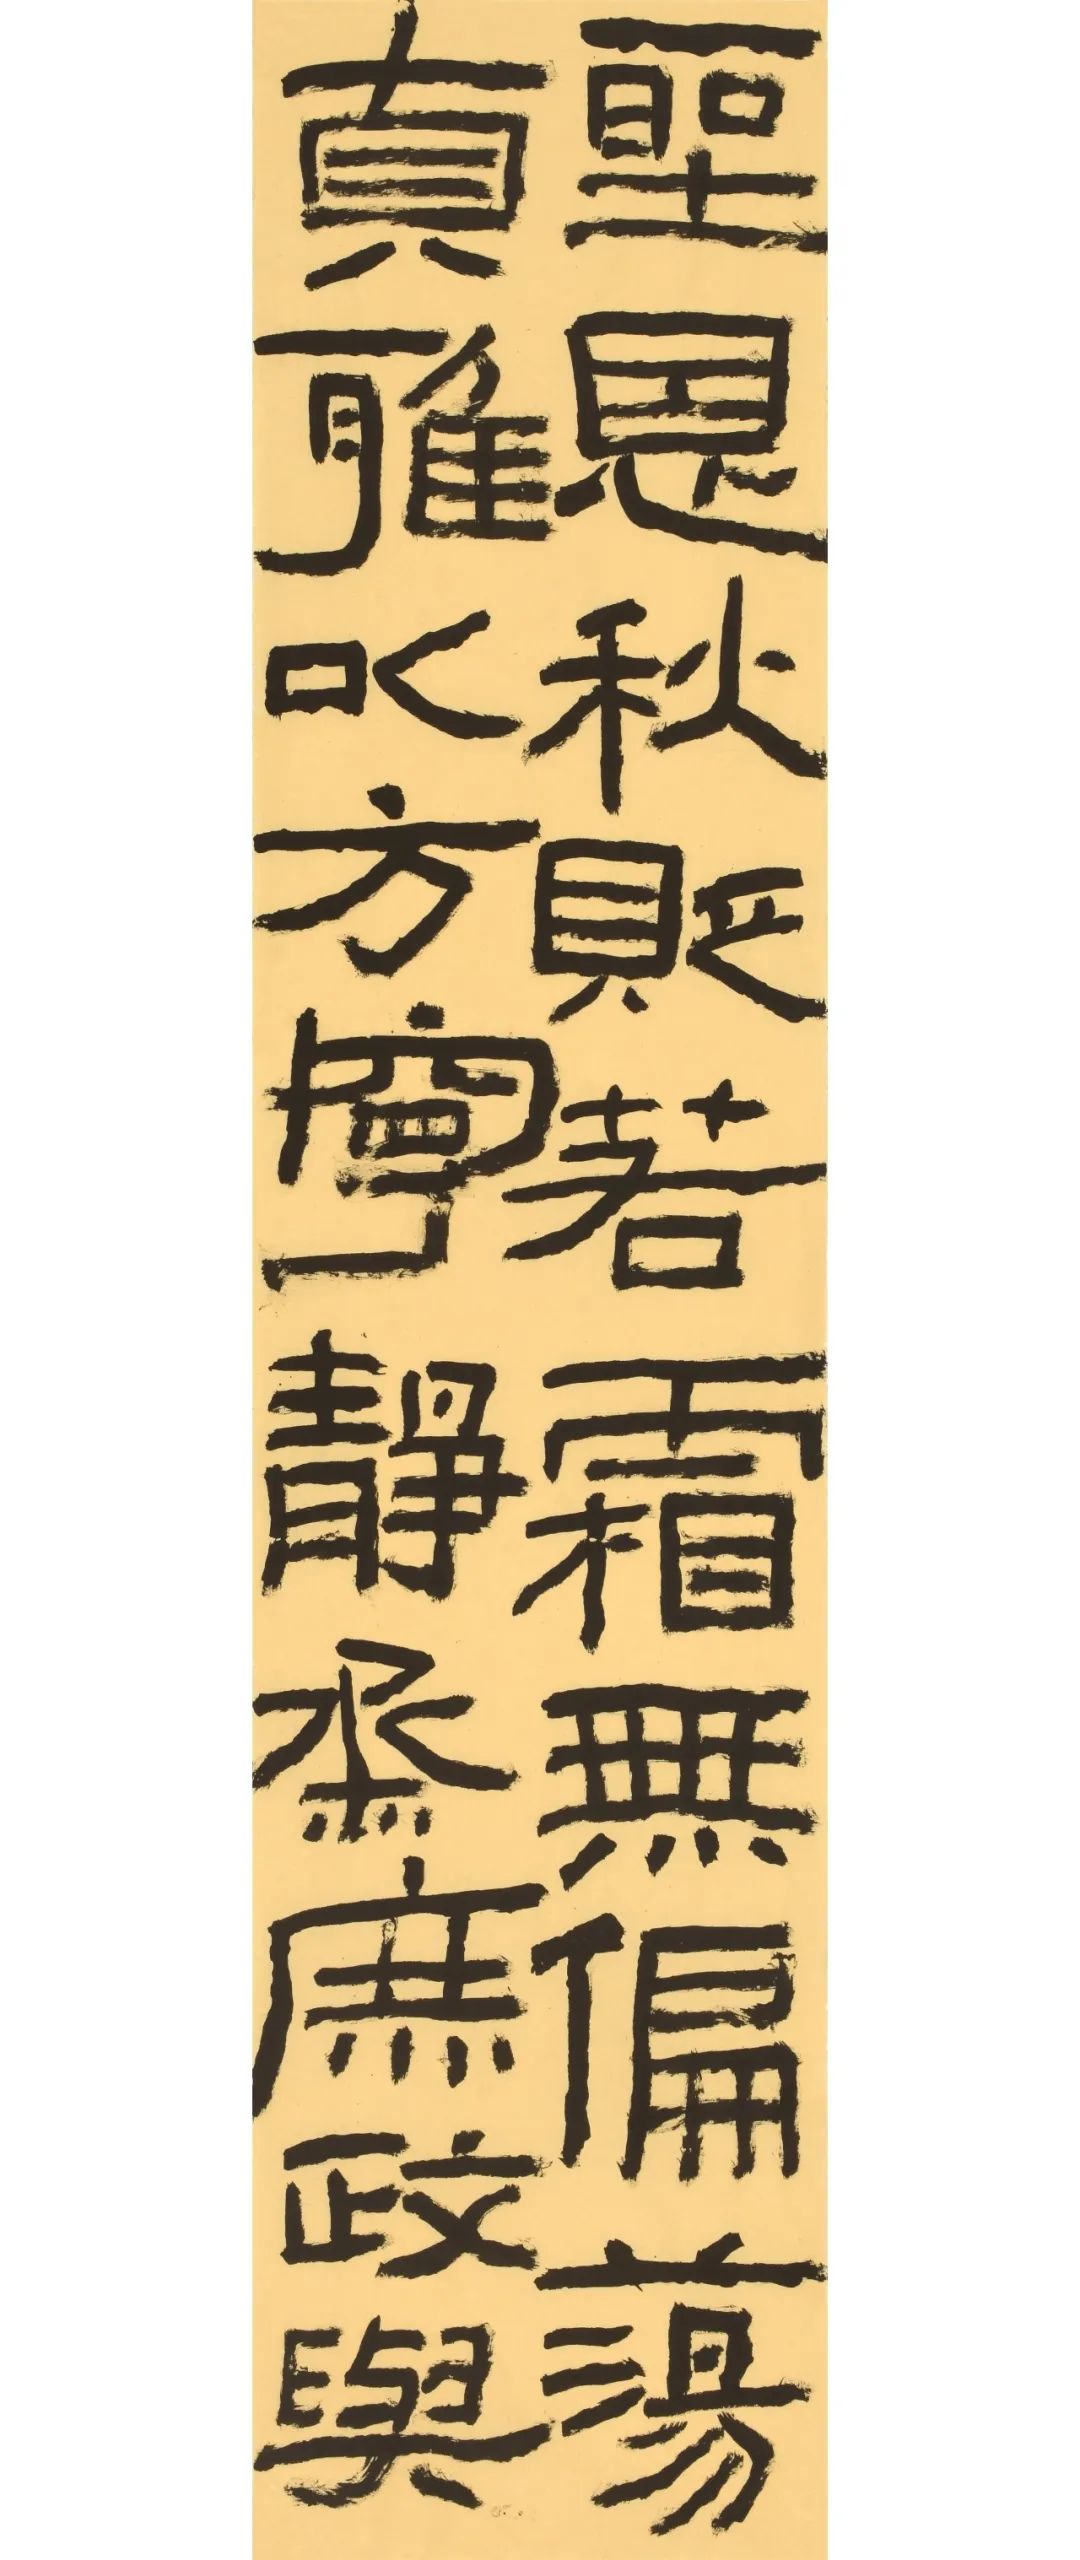 聖恩秋貶若霜無偏蕩
貞雅以方寧靜烝庶政與